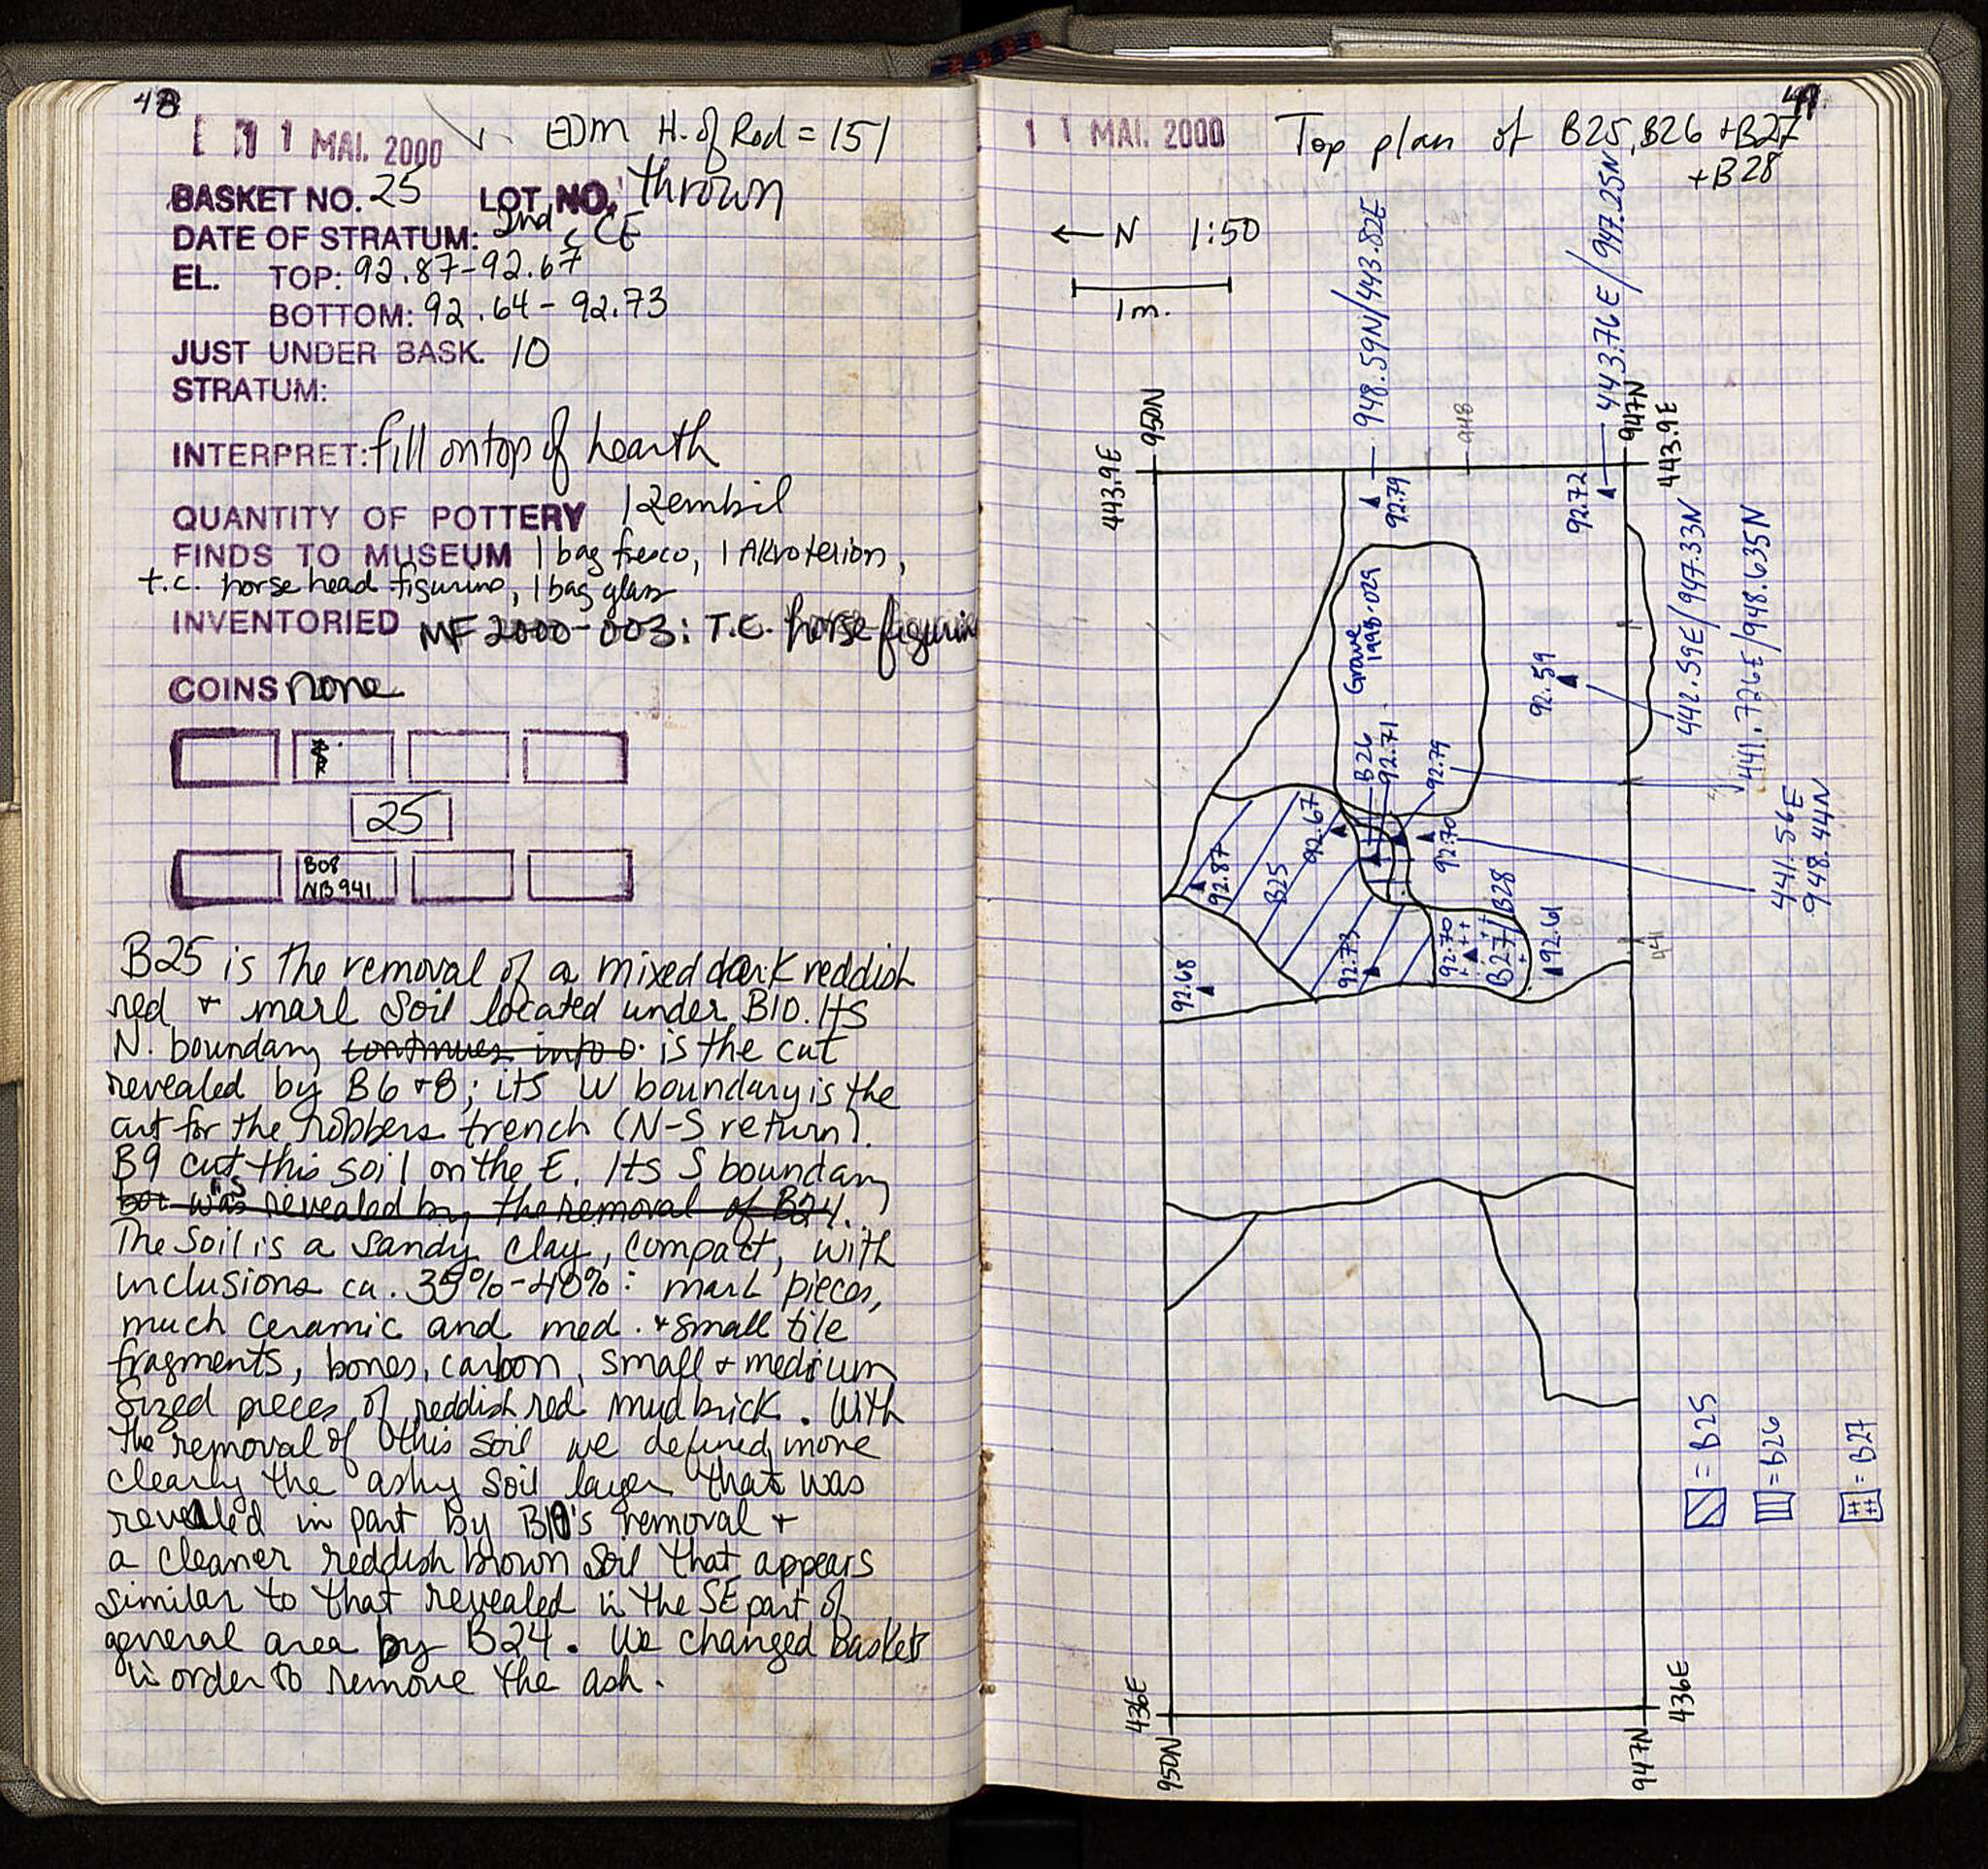 48
11 MAI. 2000 EDM H. of Rod = 151
BASKET NO. 25 LOT NO. thrown
DATE OF STRATUM: 2nd c CE
EL. TOP: 92.87-92.67
BOTTOM: 92.64-92.73
JUST UNDER BASK. 10
STRATUM:
INTERPRET: fill on top of hearth
QUANTITY OF POTTERY 1 zembil
FINDS TO MUSEUM 1 bag fresco, 1 Akroterion,
t.c. horse head figurine, 1 bag glass
INVENTORIED MF 2000-003: T.C. horse figurine
COINS none
25
B08
NB941
B25 is the removal of a mixed dark reddish
red + marl soil located under B10. Its
N. boundary continues into is the cut
revealed by B6+8; its W boundary is the
cut for the robbers trench (N-S return).
B9 cut this soil on the E. Its S boundary
was revealed by the removal of B24.
The soil is a sandy clay, compact, with
inclusions ca. 35%-40%: marl pieces,
much ceramic and med. + small tile
fragments, bones, carbon, small + medium
sized pieces of reddish red mudbrick. With
the removal of this soil we defined more
clearly the ashy soil layer that was
revealed in part by B10's removal +
a cleaner reddish brown soil that appears
similar to that revealed in the SE part of
general area by B24. We changed Baskets
in order to remove the ash.
11 MAI. 2000 Top plan of B25, B26 + B27
+ B28
← N 1:50
1m.
948.59N/443.82E
443.76E/947.25N
950N
948
947N
443.9E
443.9E
92.79
92.72
Grave 1996-029
92.59
442.59E/947.33N
441.726E/948.635N
B26
92.71
92.79
92.67
92.70
441.56E
948.44N
92.87
B25
92.73
92.70
B27/B28
92.61
92.68
941
= B25
= B26
= B27
436E
436E
950N
947N